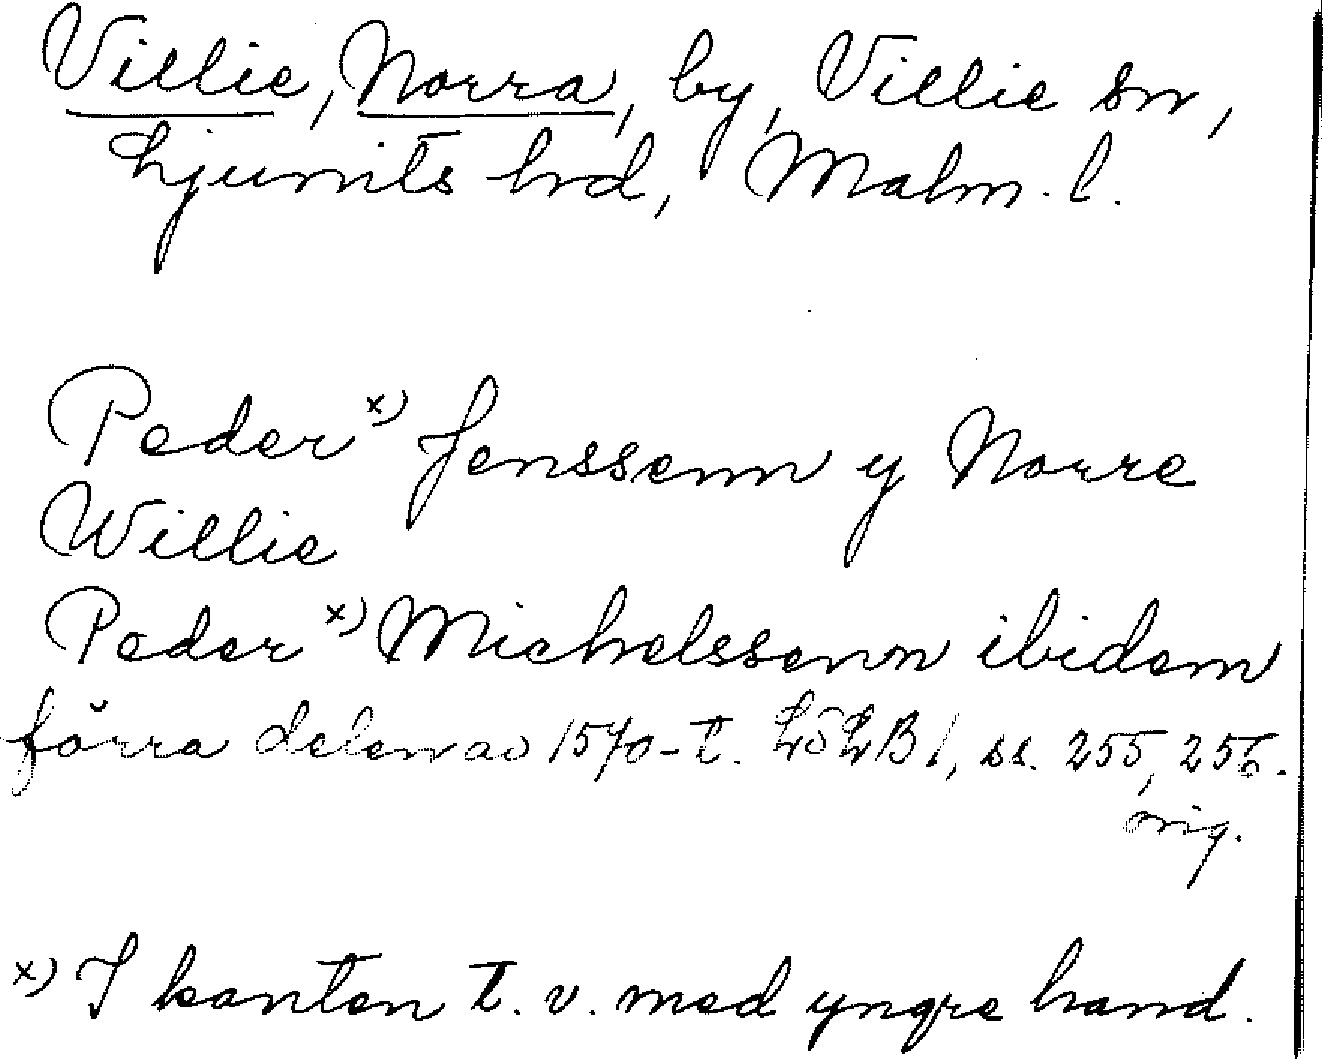 Villie, Norra, by, Villie sn,
Ljunits hrd, Malm. l.
Peder x) Jenssenn y Norre
Willie
Peder x) Michelssenn ibidem
förra delen av 1570-t. LöLB 1, ss. 255, 256.
orig.
x) I kanten t. v. med yngre hand.